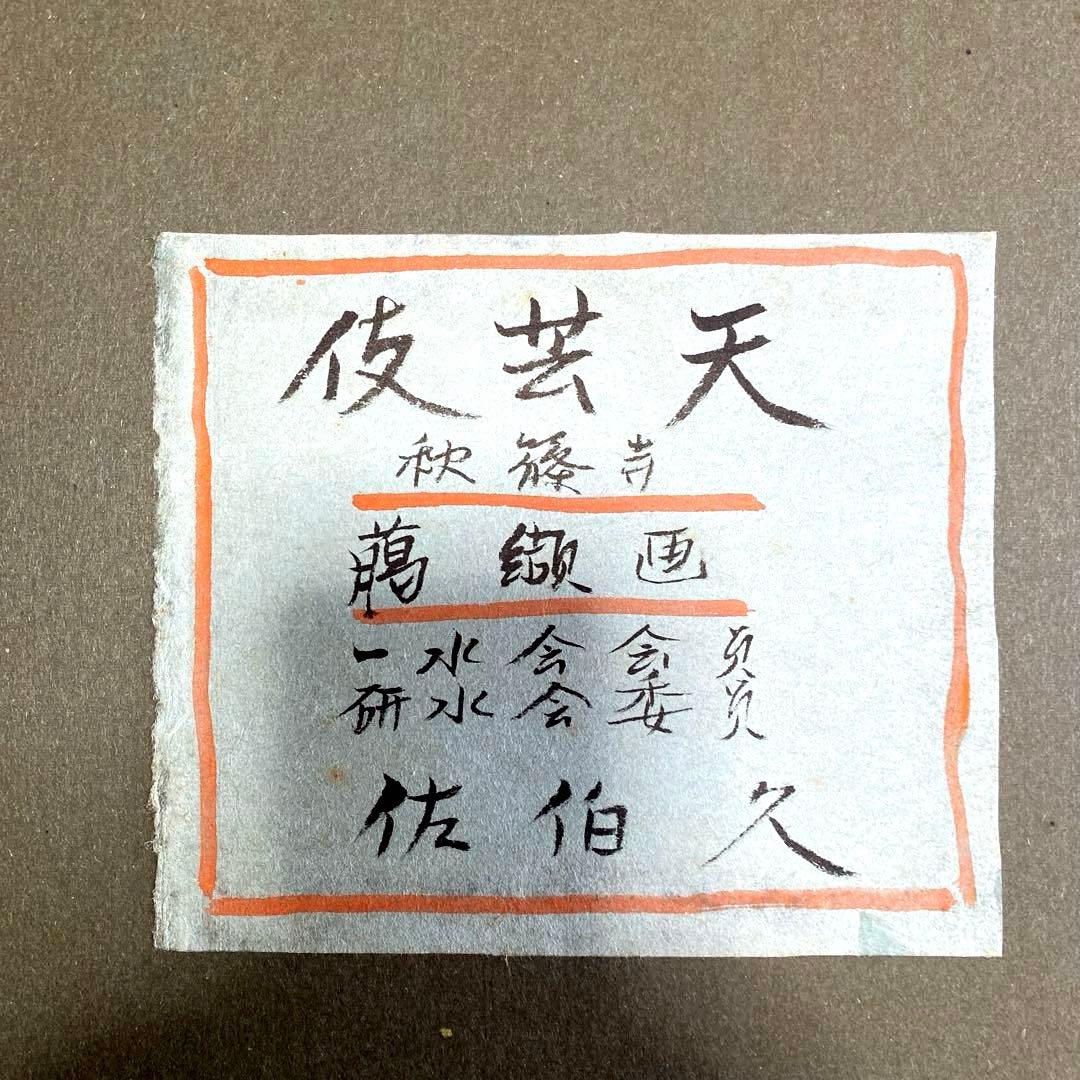 伎芸天
秋篠寺
﨟纈画
一水会会員
研水会委員
佐伯久